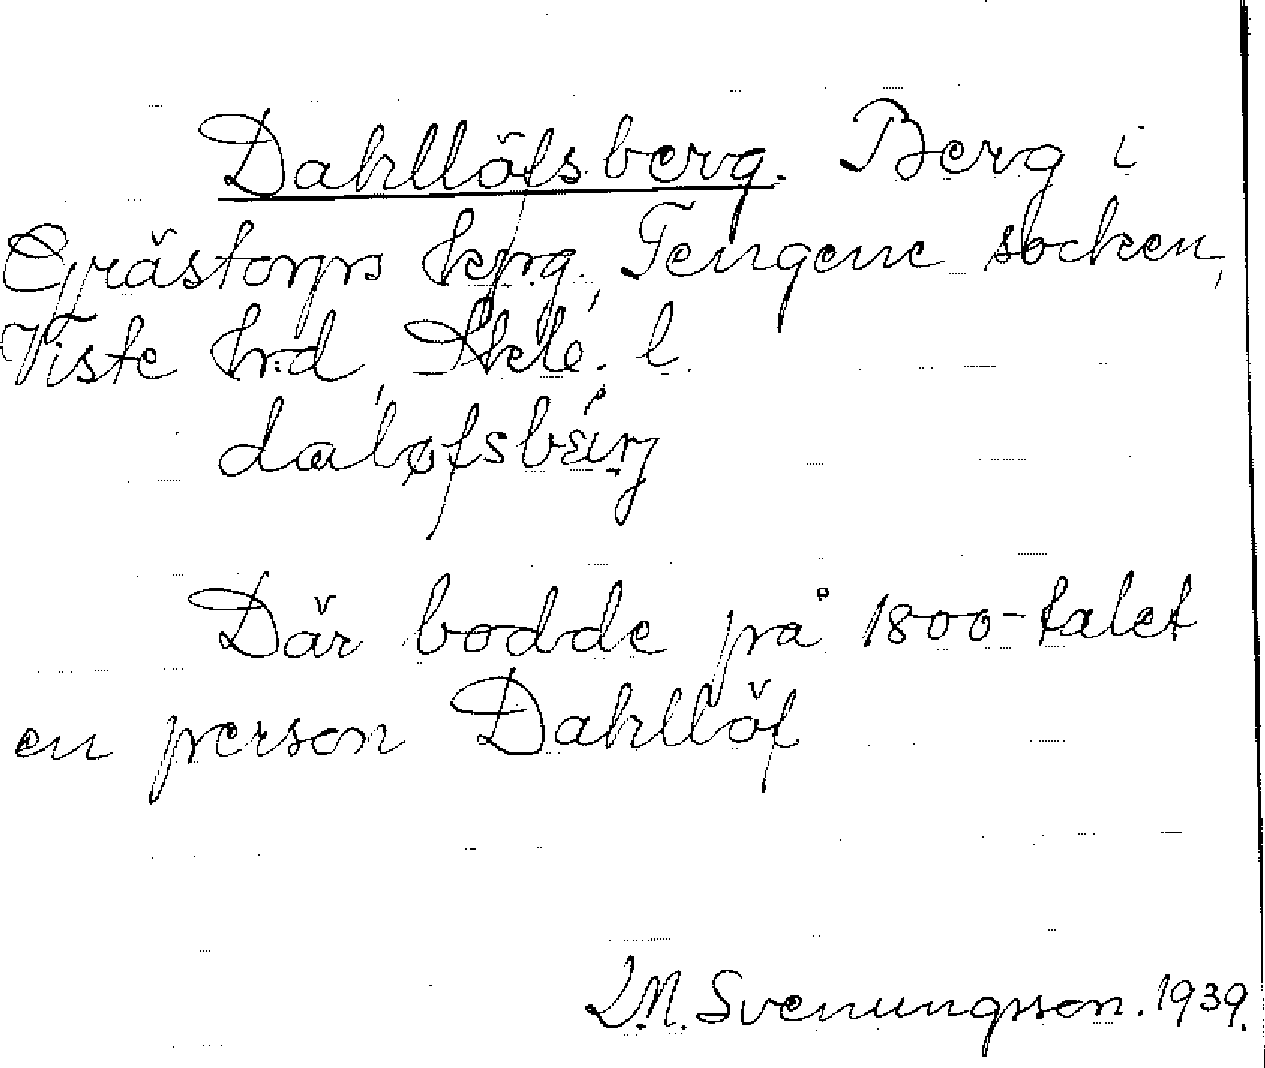 Dahllöfsberg. Berg i
Grästorps kpg, Tengene socken,
Viste hrd, l.
Där bodde på 1800-talet
en person Dahllöf
Svenungsson. 1939.